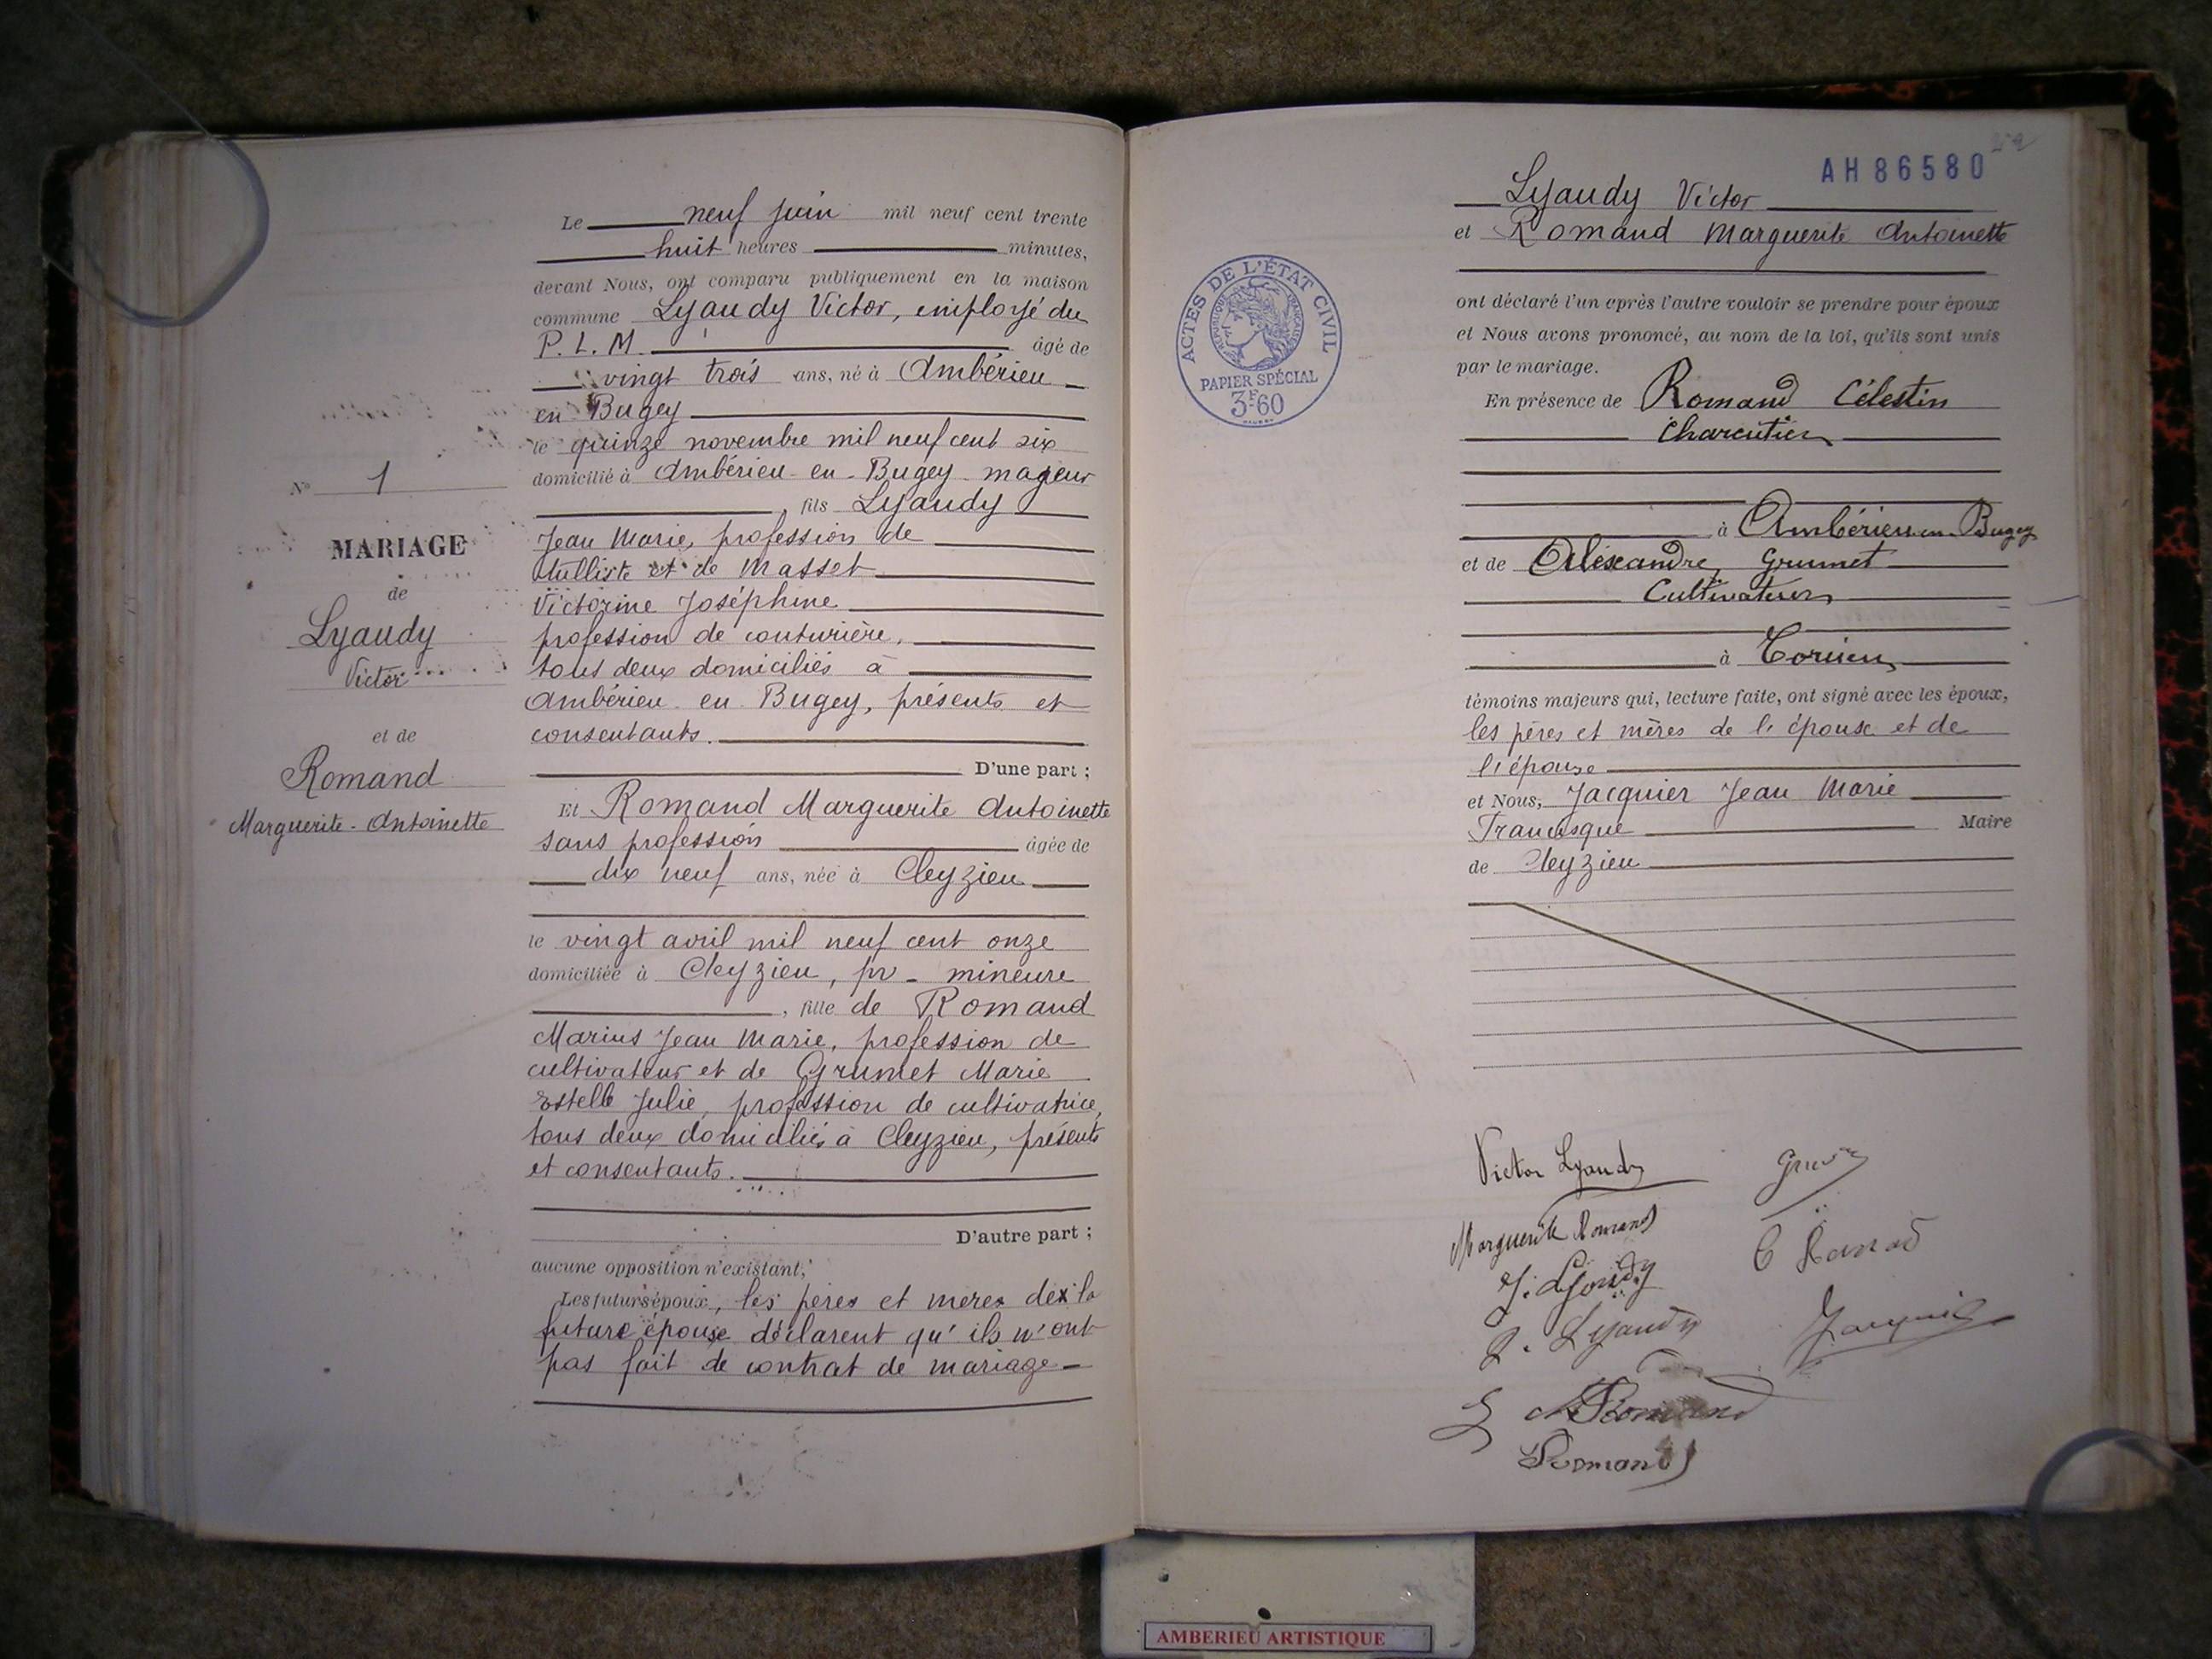 N° 1
MARIAGE
de
Lyaudy
Victor
et de
Romand
Marguerite - Antoinette
Le neuf juin mil neuf cent trente
huit heures minutes,
devant Nous, ont comparu publiquement en la maison
commune Lyaudy Victor, employé du
P. L. M. âgé de
vingt trois ans, né à Ambérieu
en Bugey
le quinze novembre mil neuf cent six
domicilié à Ambérieu - en - Bugey - majeur
, fils Lyaudy
Jean Marie, profession de
tulliste et de Masset
Victorine Joséphine
profession de couturière,
tous deux domiciliés à
Ambérieu - en - Bugey, présents et
consentants.
D'une part ;
Et Romand Marguerite Antoinette
sans profession âgée de
dix neuf ans, née à Cleyzieu
le vingt avril mil neuf cent onze
domiciliée à Cleyzieu, mineure
, fille de Romand
Marius Jean Marie, profession de
cultivateur et de Grumet Marie
Estelle Julie, profession de cultivatrice,
tous deux domiciliés à Cleyzieu, présents
et consentants.
D'autre part ;
aucune opposition n'existant,
Les futurs époux, les pères et mères de la
future épouse déclarent qu'ils n'ont
pas fait de contrat de mariage -
AH 86580
Lyaudy Victor
et Romand Marguerite Antoinette
ACTES DE L'ÉTAT CIVIL
RÉPUBLIQUE FRANÇAISE
PAPIER SPÉCIAL
3F.60
ont déclaré l'un après l'autre vouloir se prendre pour époux
et Nous avons prononcé, au nom de la loi, qu'ils sont unis
par le mariage.
En présence de Romand Célestin
Charcutier
à Ambérieu-en-Bugey
et de Alexandre, Grumet
Cultivateur
à Torcieu
témoins majeurs qui, lecture faite, ont signé avec les époux,
les pères et mères de l'épouse et de
l'épouse
et Nous, Jacquier Jean Marie
Francisque Maire
de Cleyzieu
Victor Lyaudy
Marguerite Romand
J. Lyaudy
Lyaudy
Romand
Romand
Jacquier
AMBERIEU ARTISTIQUE